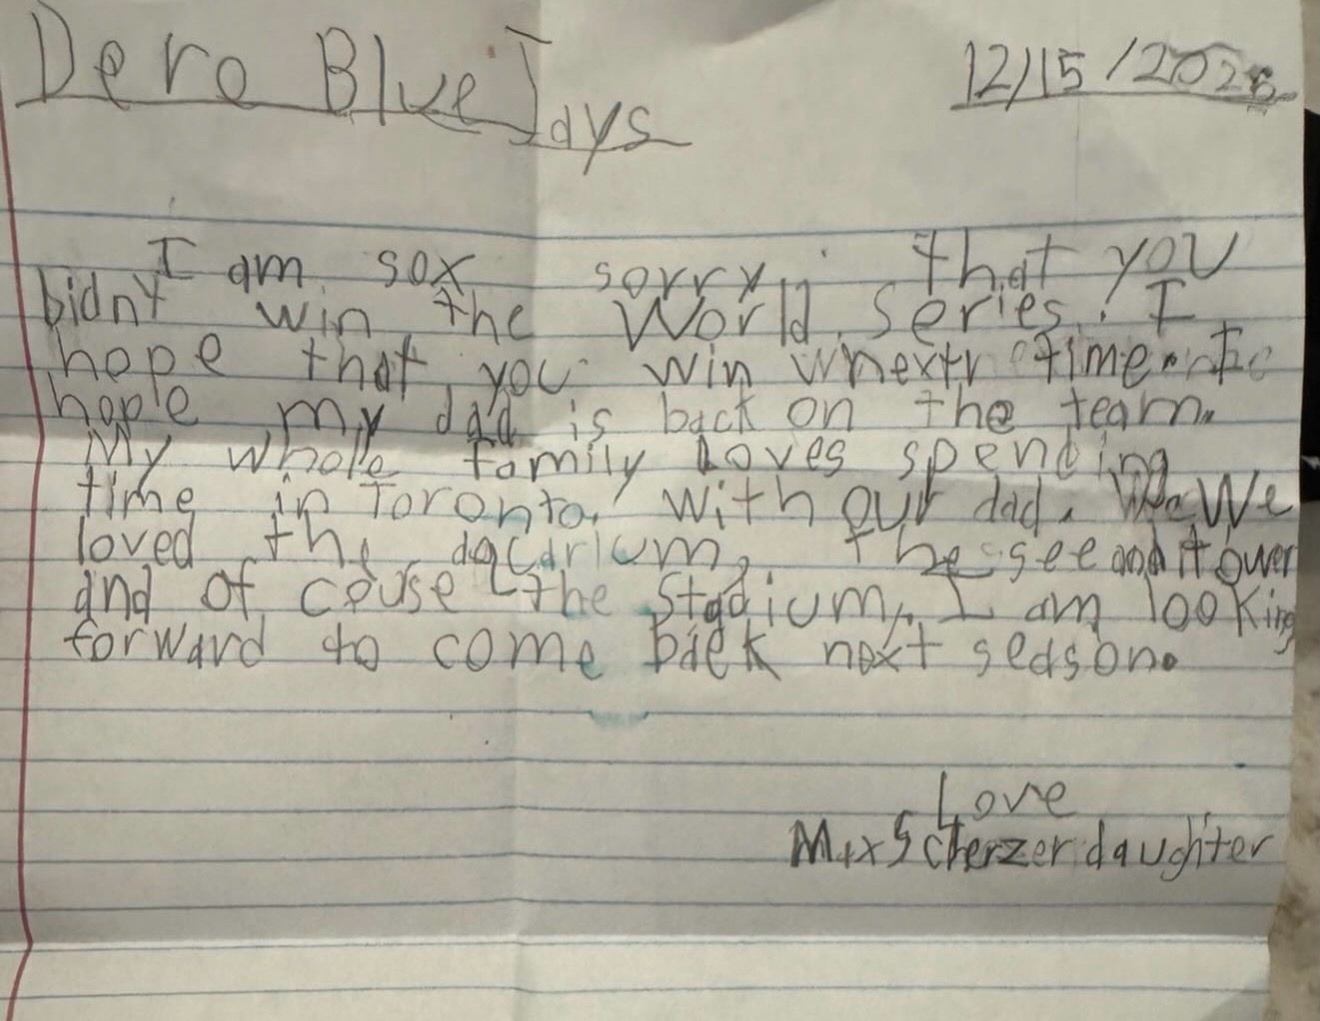 Dero Blue Jays
12/15/2025
I am sox sorry that you
bidnt win the World series. I
hope that you win whextr time. I
hople my dad is back on the team.
My whole family Loves spending
time in Toronto, with our dad. We We
loved the aqcarium, the see and tower
and of couse the Stadium, I am looking
forward to come back next season.
Love
Max Scherzer daughter